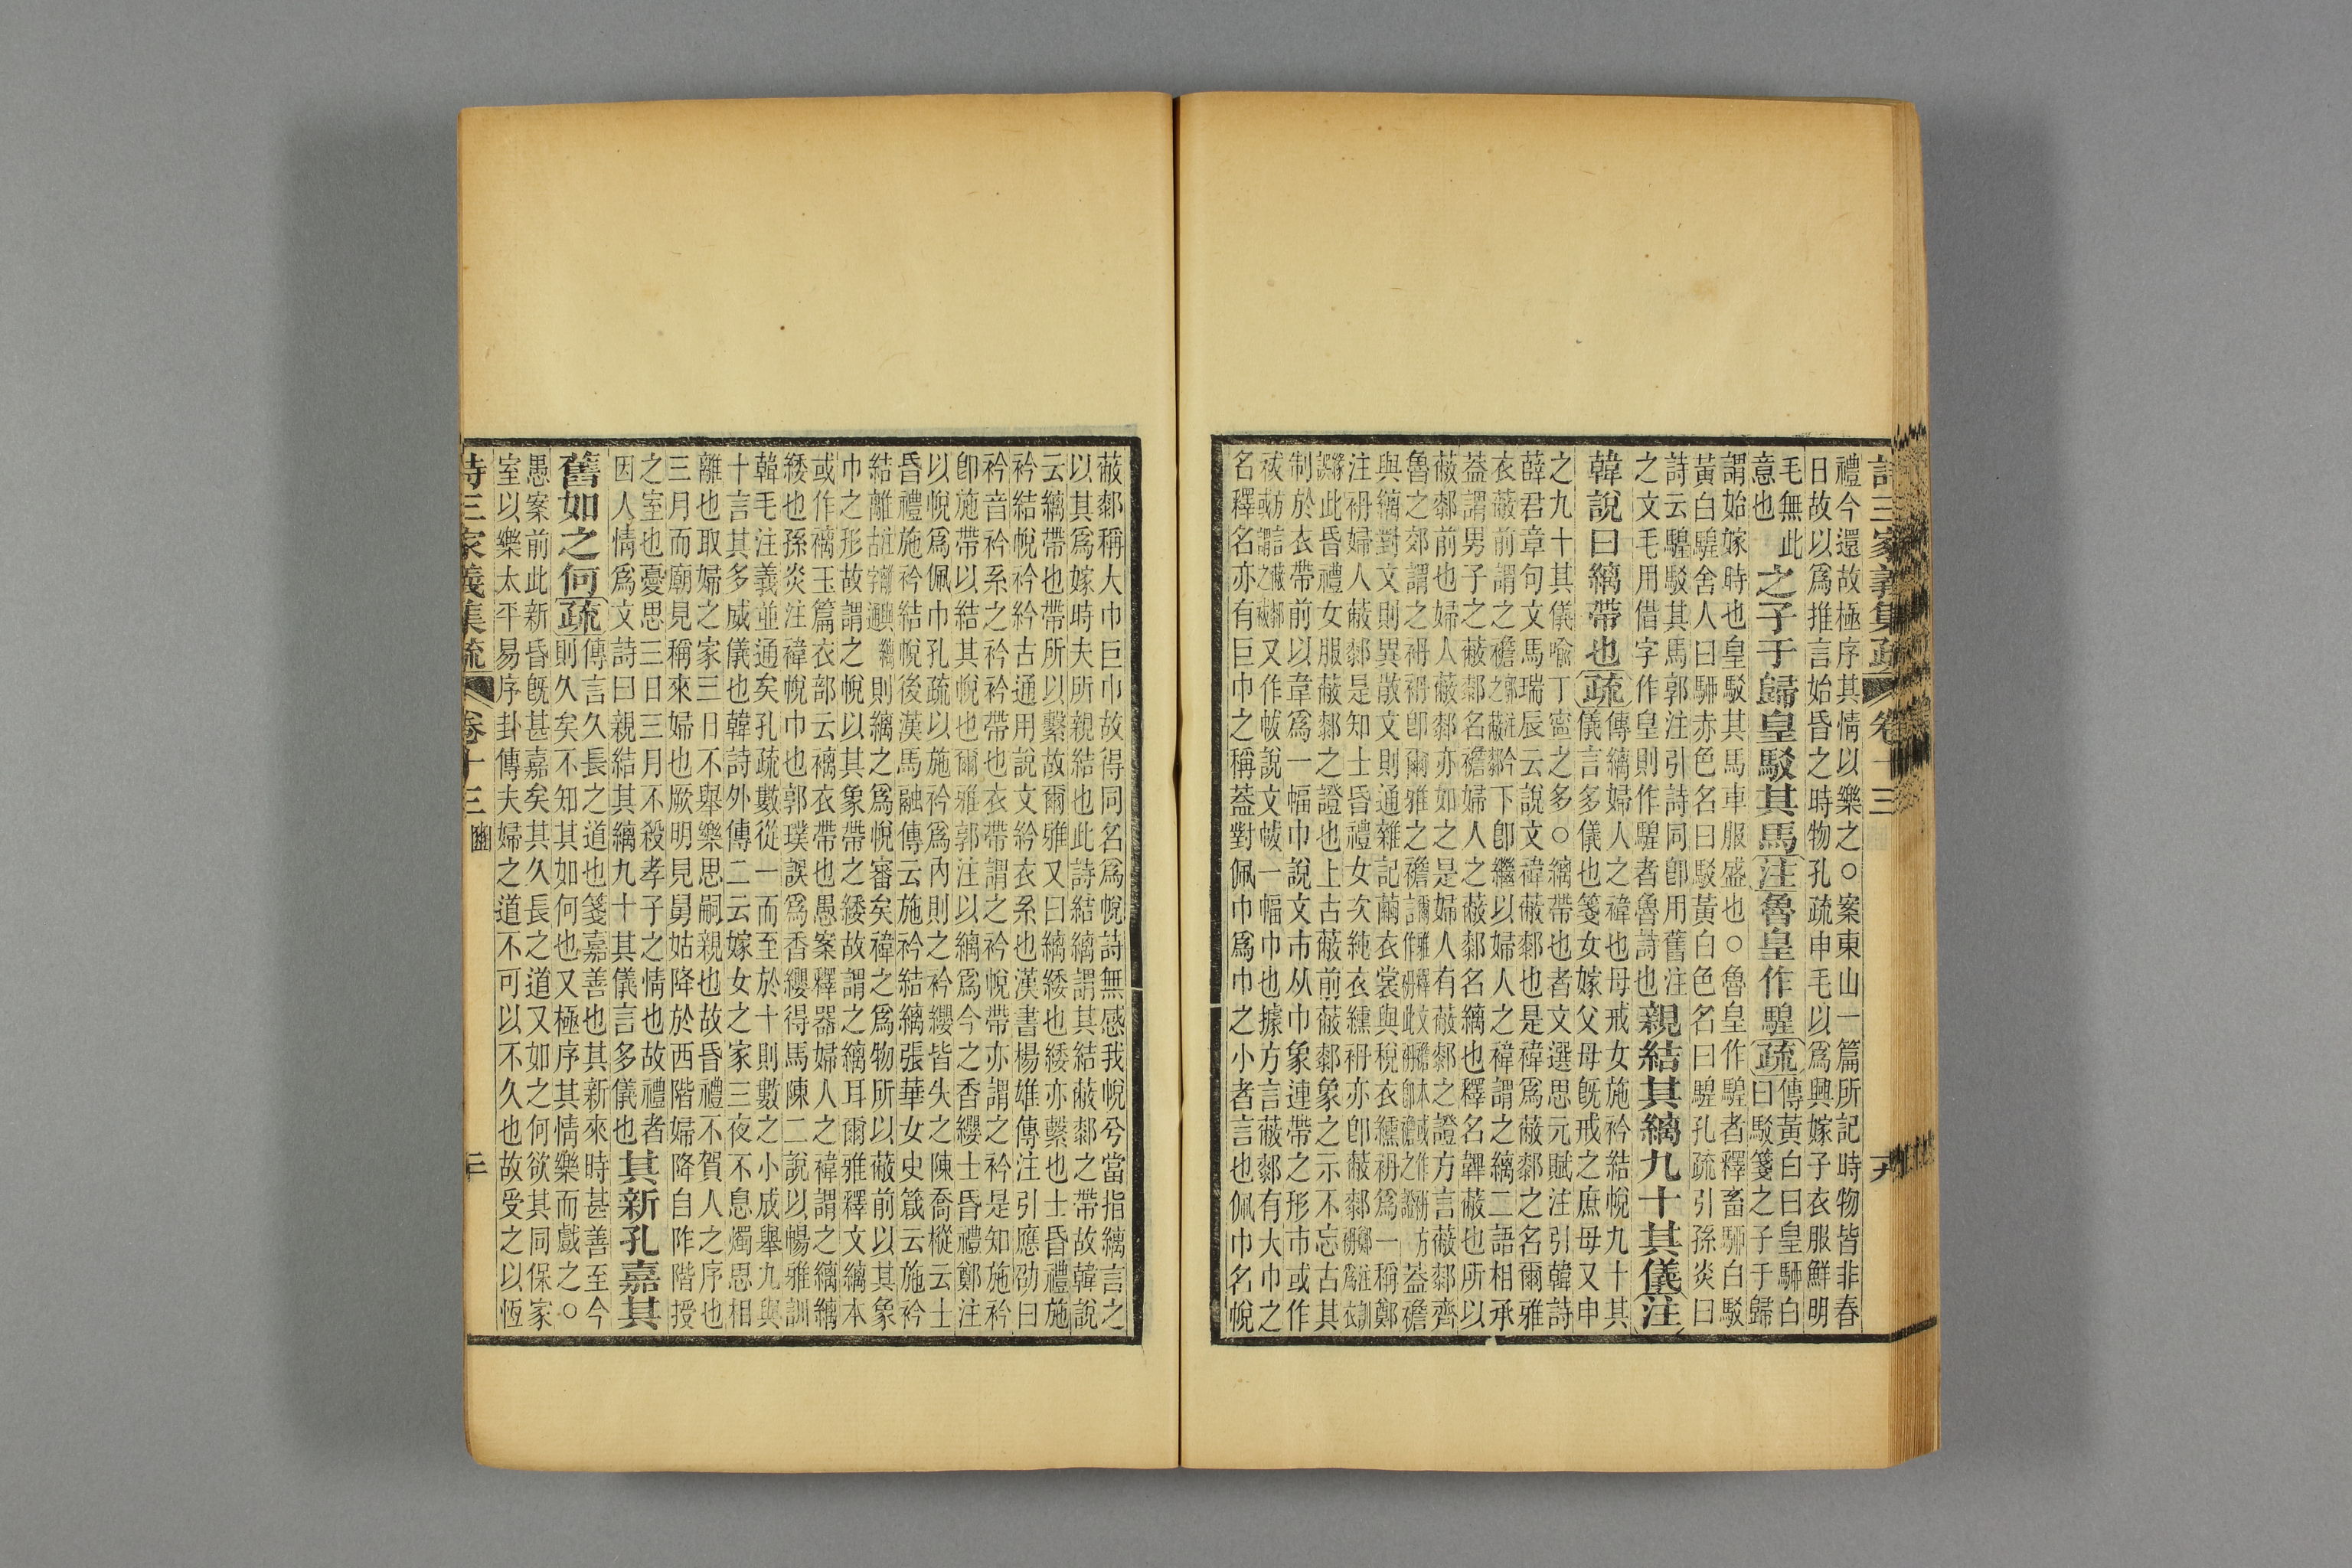 詩三家義集疏 卷十三
禮今還故極序其情以樂之○案東山一篇所記時物皆非春
日故以爲推言始昏之時物孔疏申毛以爲興嫁子衣服鮮明
毛無此
意也
之子于歸皇駁其馬注魯皇作騜疏
傳黃白曰皇騂白
曰駁箋之子于歸
謂始嫁時也皇駁其馬車服盛也○魯皇作騜者釋畜騂白駁
黃白騜舍人曰騂赤色名曰駁黃白色名曰騜孔疏引孫炎曰
詩云騜駁其馬郭注引詩同卽用舊注
之文毛用借字作皇則作騜者魯詩也
親結其縭九十其儀注
韓說曰縭帶也疏
傳縭婦人之褘也母戒女施衿結帨九十其
儀言多儀也箋女嫁父母旣戒之庶母又申
之九十其儀喩丁寧之多○縭帶也者文選思元賦注引韓詩
薛君章句文馬瑞辰云說文褘蔽䣛也是褘爲蔽䣛之名爾雅
衣蔽前謂之襜郭注蔽䣛下卽繼以婦人之褘謂之縭二語相承
葢謂男子之蔽䣛名襜婦人之蔽䣛名縭也釋名韠蔽也所以
蔽䣛前也婦人蔽䣛亦如之是婦人有蔽䣛之證方言蔽䣛齊
魯之郊謂之袡袡卽爾雅之襜
葢襜
與縭對文則異散文則通雜記繭衣裳與稅衣纁袡爲一稱鄭
注袡婦人蔽䣛是知士昏禮女次純衣纁袡亦卽蔽䣛
此昏禮女服蔽䣛之證也上古蔽前蔽䣛象之示不忘古其
制於衣帶前以韋爲一幅巾說文巿从巾象連帶之形巿或作
又作帗說文帗一幅巾也據方言蔽䣛有大巾之
名釋名亦有巨巾之稱葢對佩巾爲巾之小者言也佩巾名帨
蔽䣛稱大巾巨巾故得同名爲帨詩無感我帨兮當指縭言之
以其爲嫁時夫所親結也此詩結縭謂其結蔽䣛之帶故韓說
云縭帶也帶所以繫故爾雅又曰縭緌也緌亦繫也士昏禮施
衿結帨衿紟古通用說文紟衣系也漢書楊雄傳注引應劭曰
衿音衿系之衿衿帶也衣帶謂之衿帨帶亦謂之衿是知施衿
卽施帶以結其帨也爾雅郭注以縭爲今之香纓士昏禮鄭注
以帨爲佩巾孔疏以施衿爲內則之衿纓皆失之陳喬樅云士
昏禮施衿結帨後漢馬融傳云施衿結縭張華女史箴云施衿
結離則縭之爲帨審矣褘之爲物所以蔽前以其象
巾之形故謂之帨以其象帶之緌故謂之縭耳爾雅釋文縭本
或作褵玉篇衣部云褵衣帶也愚案釋器婦人之褘謂之縭縭
緌也孫炎注褘帨巾也郭璞誤爲香纓得馬陳二說以暢雅訓
韓毛注義並通矣孔疏數從一而至於十則數之小成舉九與
十言其多威儀也韓詩外傳二云嫁女之家三夜不息燭思相
離也取婦之家三日不舉樂思嗣親也故昏禮不賀人之序也
三月而廟見稱來婦也厥明見舅姑降於西階婦降自阼階授
之室也憂思三日三月不殺孝子之情也故禮者
因人情爲文詩曰親結其縭九十其儀言多儀也
其新孔嘉其
舊如之何疏
傳言久長之道也箋嘉善也其新來時甚善至今
則久矣不知其如何也又極序其情樂而戲之○
愚案前此新昏旣甚嘉矣其久長之道又如之何欲其同保家
室以樂太平易序卦傳夫婦之道不可以不久也故受之以恆
詩三家義集疏 卷十三 豳